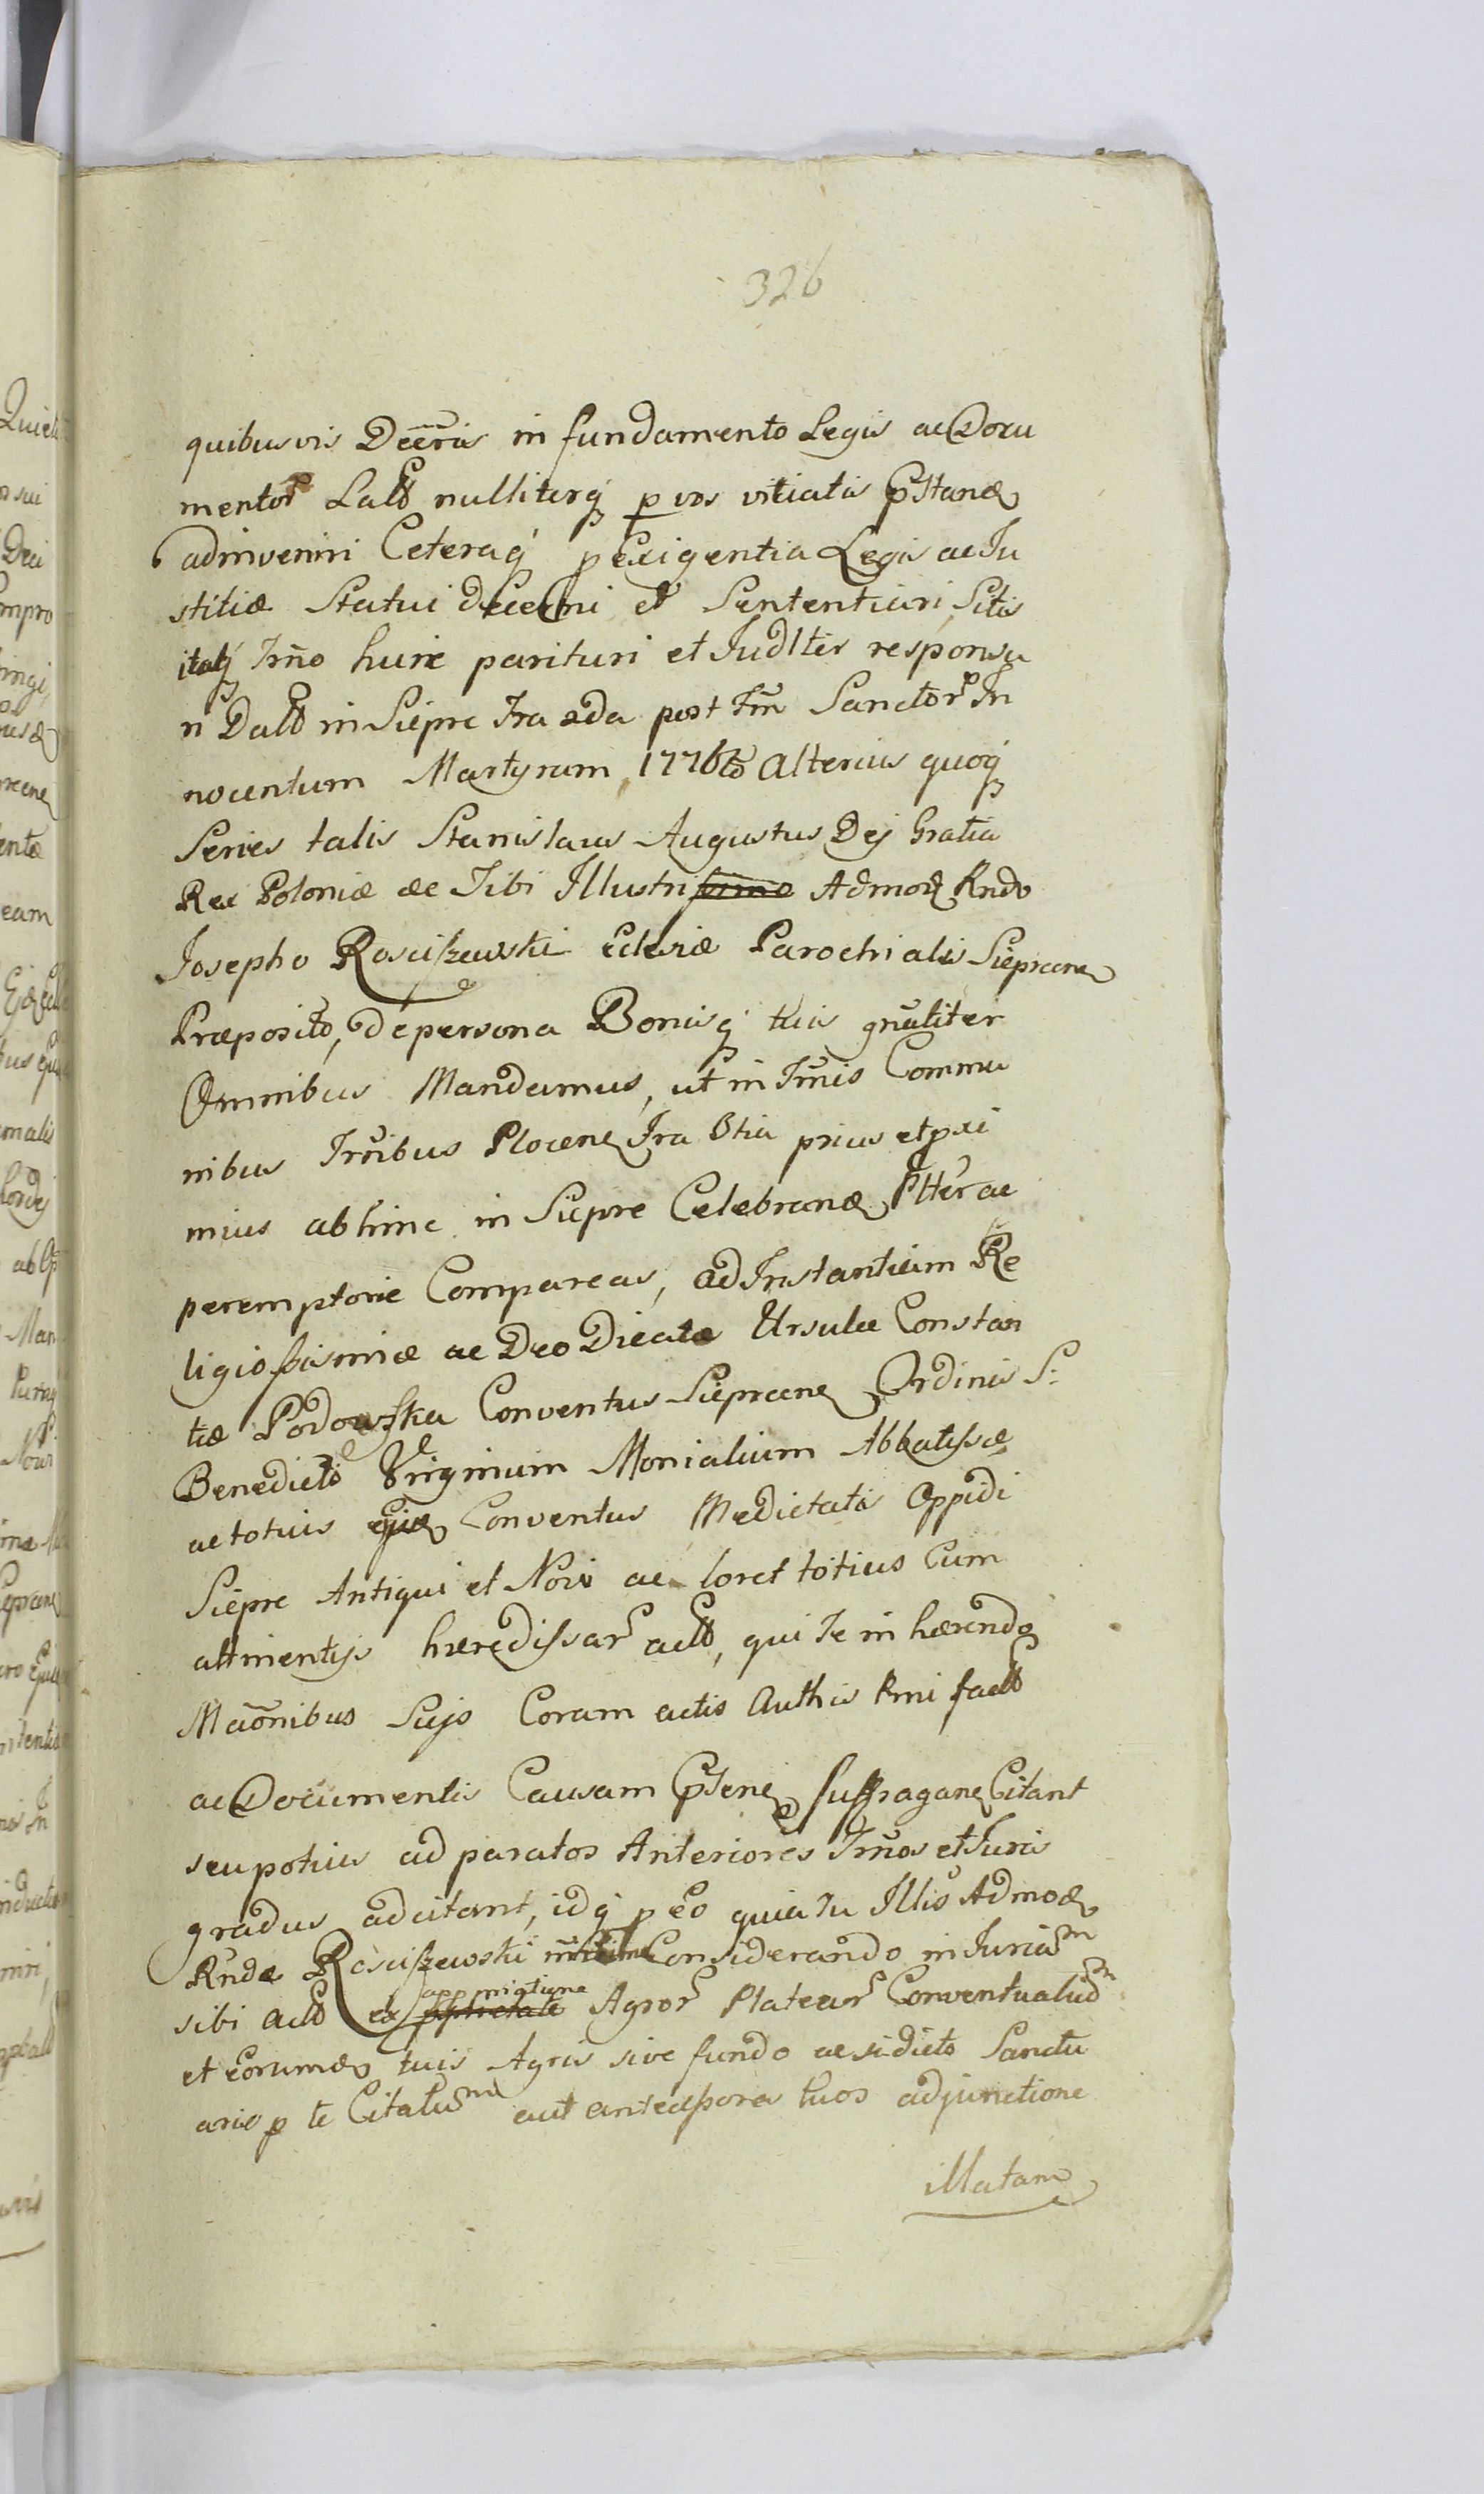 326
quibusvis Decris in fundamento Legis ac Docu
mentor Latt nulliterq p vos vitiatis pstand
adinveniri Ceteraq p Exigentia Legis ac Ju
stitiæ Statui decerni et Sententiari, Sitis
itaq Trno huic parituri et Judlter responsu
ri Datt in Siepre Fra 2da post Fm Sanctor In
nocentum Martyrum, 1776to Alterius quoq
Series talis Stanislaus Augustus Dej Gratia
Rex Poloniæ &c Tibi Illustrissimo Admod Rndo
Josepho Rosciszewski Eclesiæ Parochialis Sieprcen
Præposito, de persona Bonisq tuis gnaliter
Omnibus Mandamus, ut in Tmis Commu
nibus Trribus Plocen Fra 3tia prius et pxi
mius abhinc in Siepre Celebrand Ptter ac
peremptorie Compareas, ad Instantiam Re
ligiosissimæ ac Deo Dicatæ Ursulæ Constan
tiæ Podowska Conventus Sieprcen Ordinis S:
Benedicti Virginum Monialium Abbatissæ
ac totius ejusd Conventus Medietatis Oppidi
Siepre Antiqui et Novi ac loret totius Cum
attinentijs hæredissar actt, qui Te in hærendo
Maonibus Sujs Coram actis Authis Rmi factt
ac Documentis Causam Psten suffragan Citant
seu potius ad paratos Anteriores Trnos et Juris
gradus adcitant, idq p eo quia Tu Illris Admod
Rnde Rosciszewski Considerando in Juriam
sibi actt ex appmiatione Agror Platear Conventualium
et eorumd tuis Agris sive fundo ac sidicto Sanctu
ario p te Citatum aut antecessores tuos adjunctione
illatam